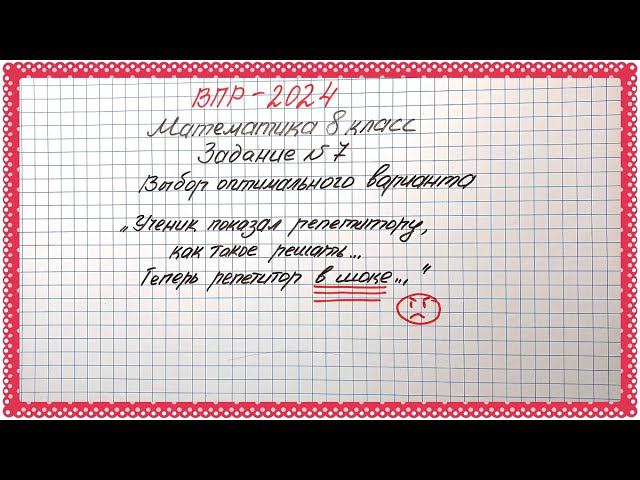 ВПР-2024
Математика 8 класс
Задание №7
Выбор оптимального варианта
„Ученик показал репетитору,
как такое решать...
Теперь репетитор в шоке..."